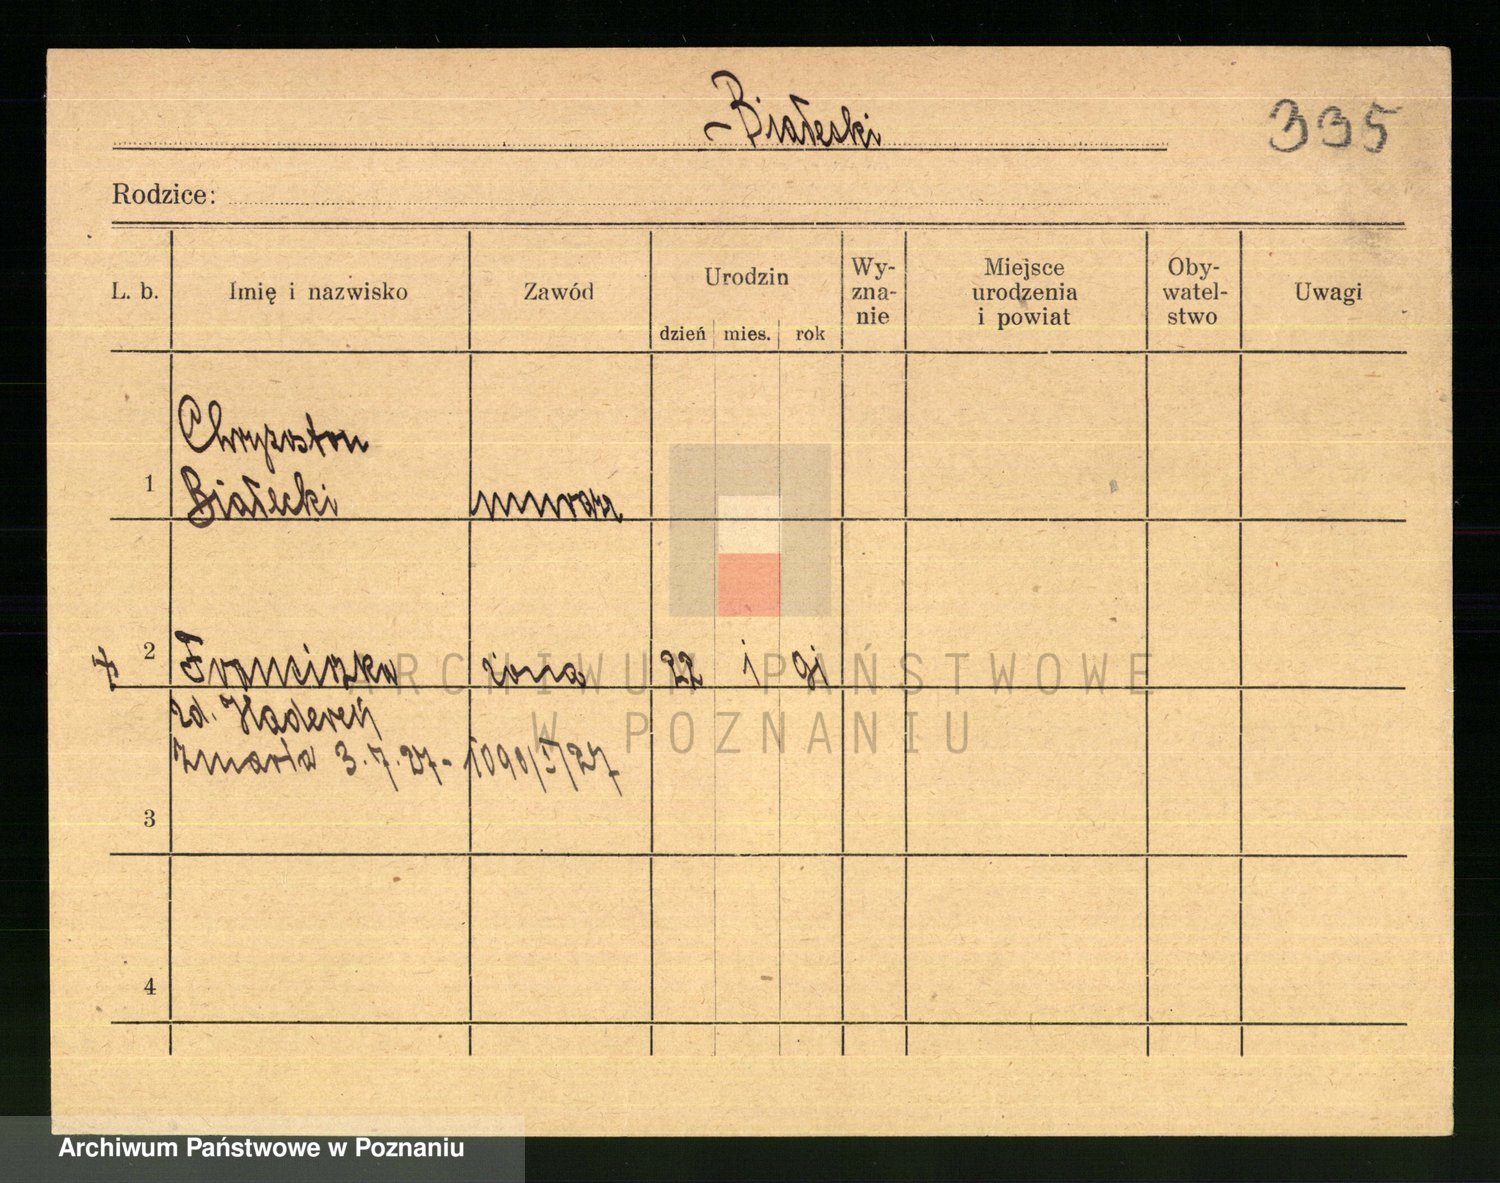 Białeski
335
Rodzice:
L. b. Imię i nazwisko Zawód Urodzin dzień mies. rok Wy-zna-nie Miejsce urodzenia i powiat Oby-watel-stwo Uwagi
Chryzostom
1 Białecki murarz
2 Franciszka żona 22 1
zd.
zmarła 3.7.27 - 1090/I/27
3
4
ARCHIWUM PAŃSTWOWE
W POZNANIU
Archiwum Państwowe w Poznaniu